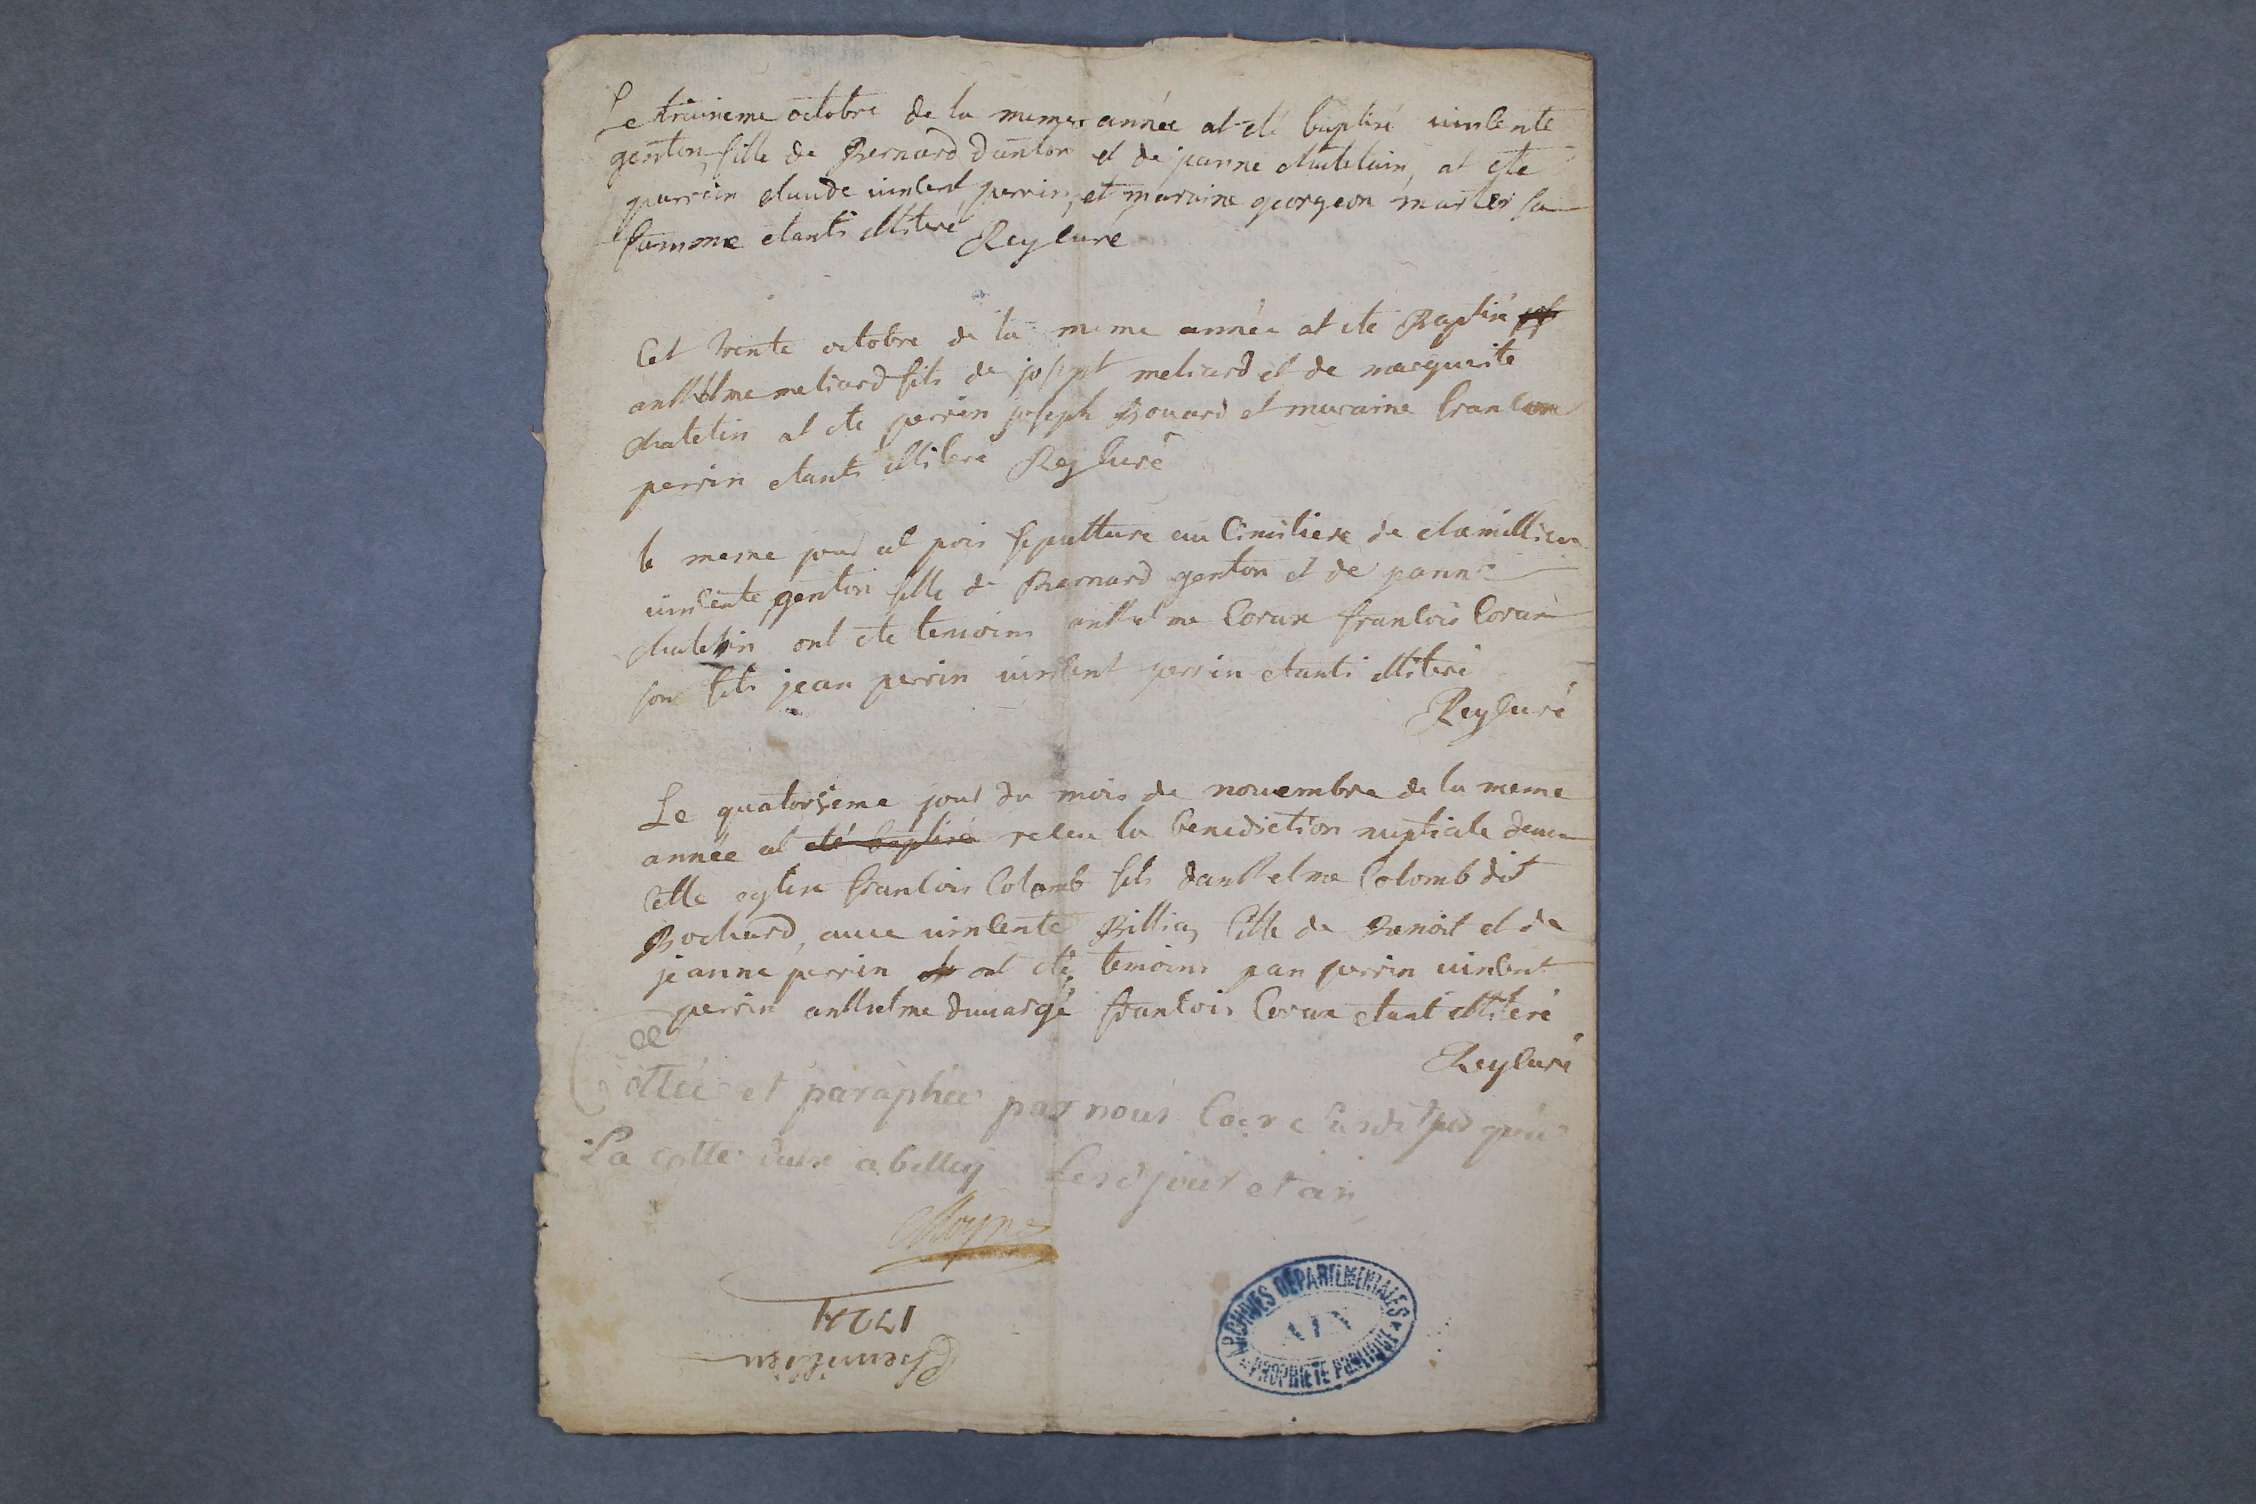 Le trisieme octobre de la meme année at eté baptisé uincente
genton fille de Bernard danton et de jeanne chatelain, at ete
parrain claude uincent perrin, et maraine georgeon martin sa
famme etants illiteré Rey curé
Cet trente octobre de la meme année at ete Baptisé
anthelme meliard fils de josept meliard et de marguerite
chatelin at ete perrin joseph Bouard et maraine francoise
perrin etants illiteré Rey curé
le meme jour at pris sepulture au Cimitiere de chemillieu
uincente genton fille de Bernard genton et de jeanne
chatelin ont ete temoins anthelme Coran francois Coran
son fils jean perrin uincent perrin etants illiteré
Rey curé
Le quatorsieme jour du mois de nouembre de la meme
année at eté baptisé receu la benediction nuptiale dans
cette eglise francois Colomb fils d'anthelme Colomb dit
Bochard, auec uincente Billia fille de Benoit et de
jeanne perrin ont eté temoins jean perrin uincent
perrin anthelme dumargé francois Coran etant illiteré
Rey curé
Cottée et paraphée par nous
La cotte a belley lesd jour et an
1724
Chemilieu
ARCHIVES DÉPARTEMENTALES
AIN
PROPRIETE PUBLIQUE